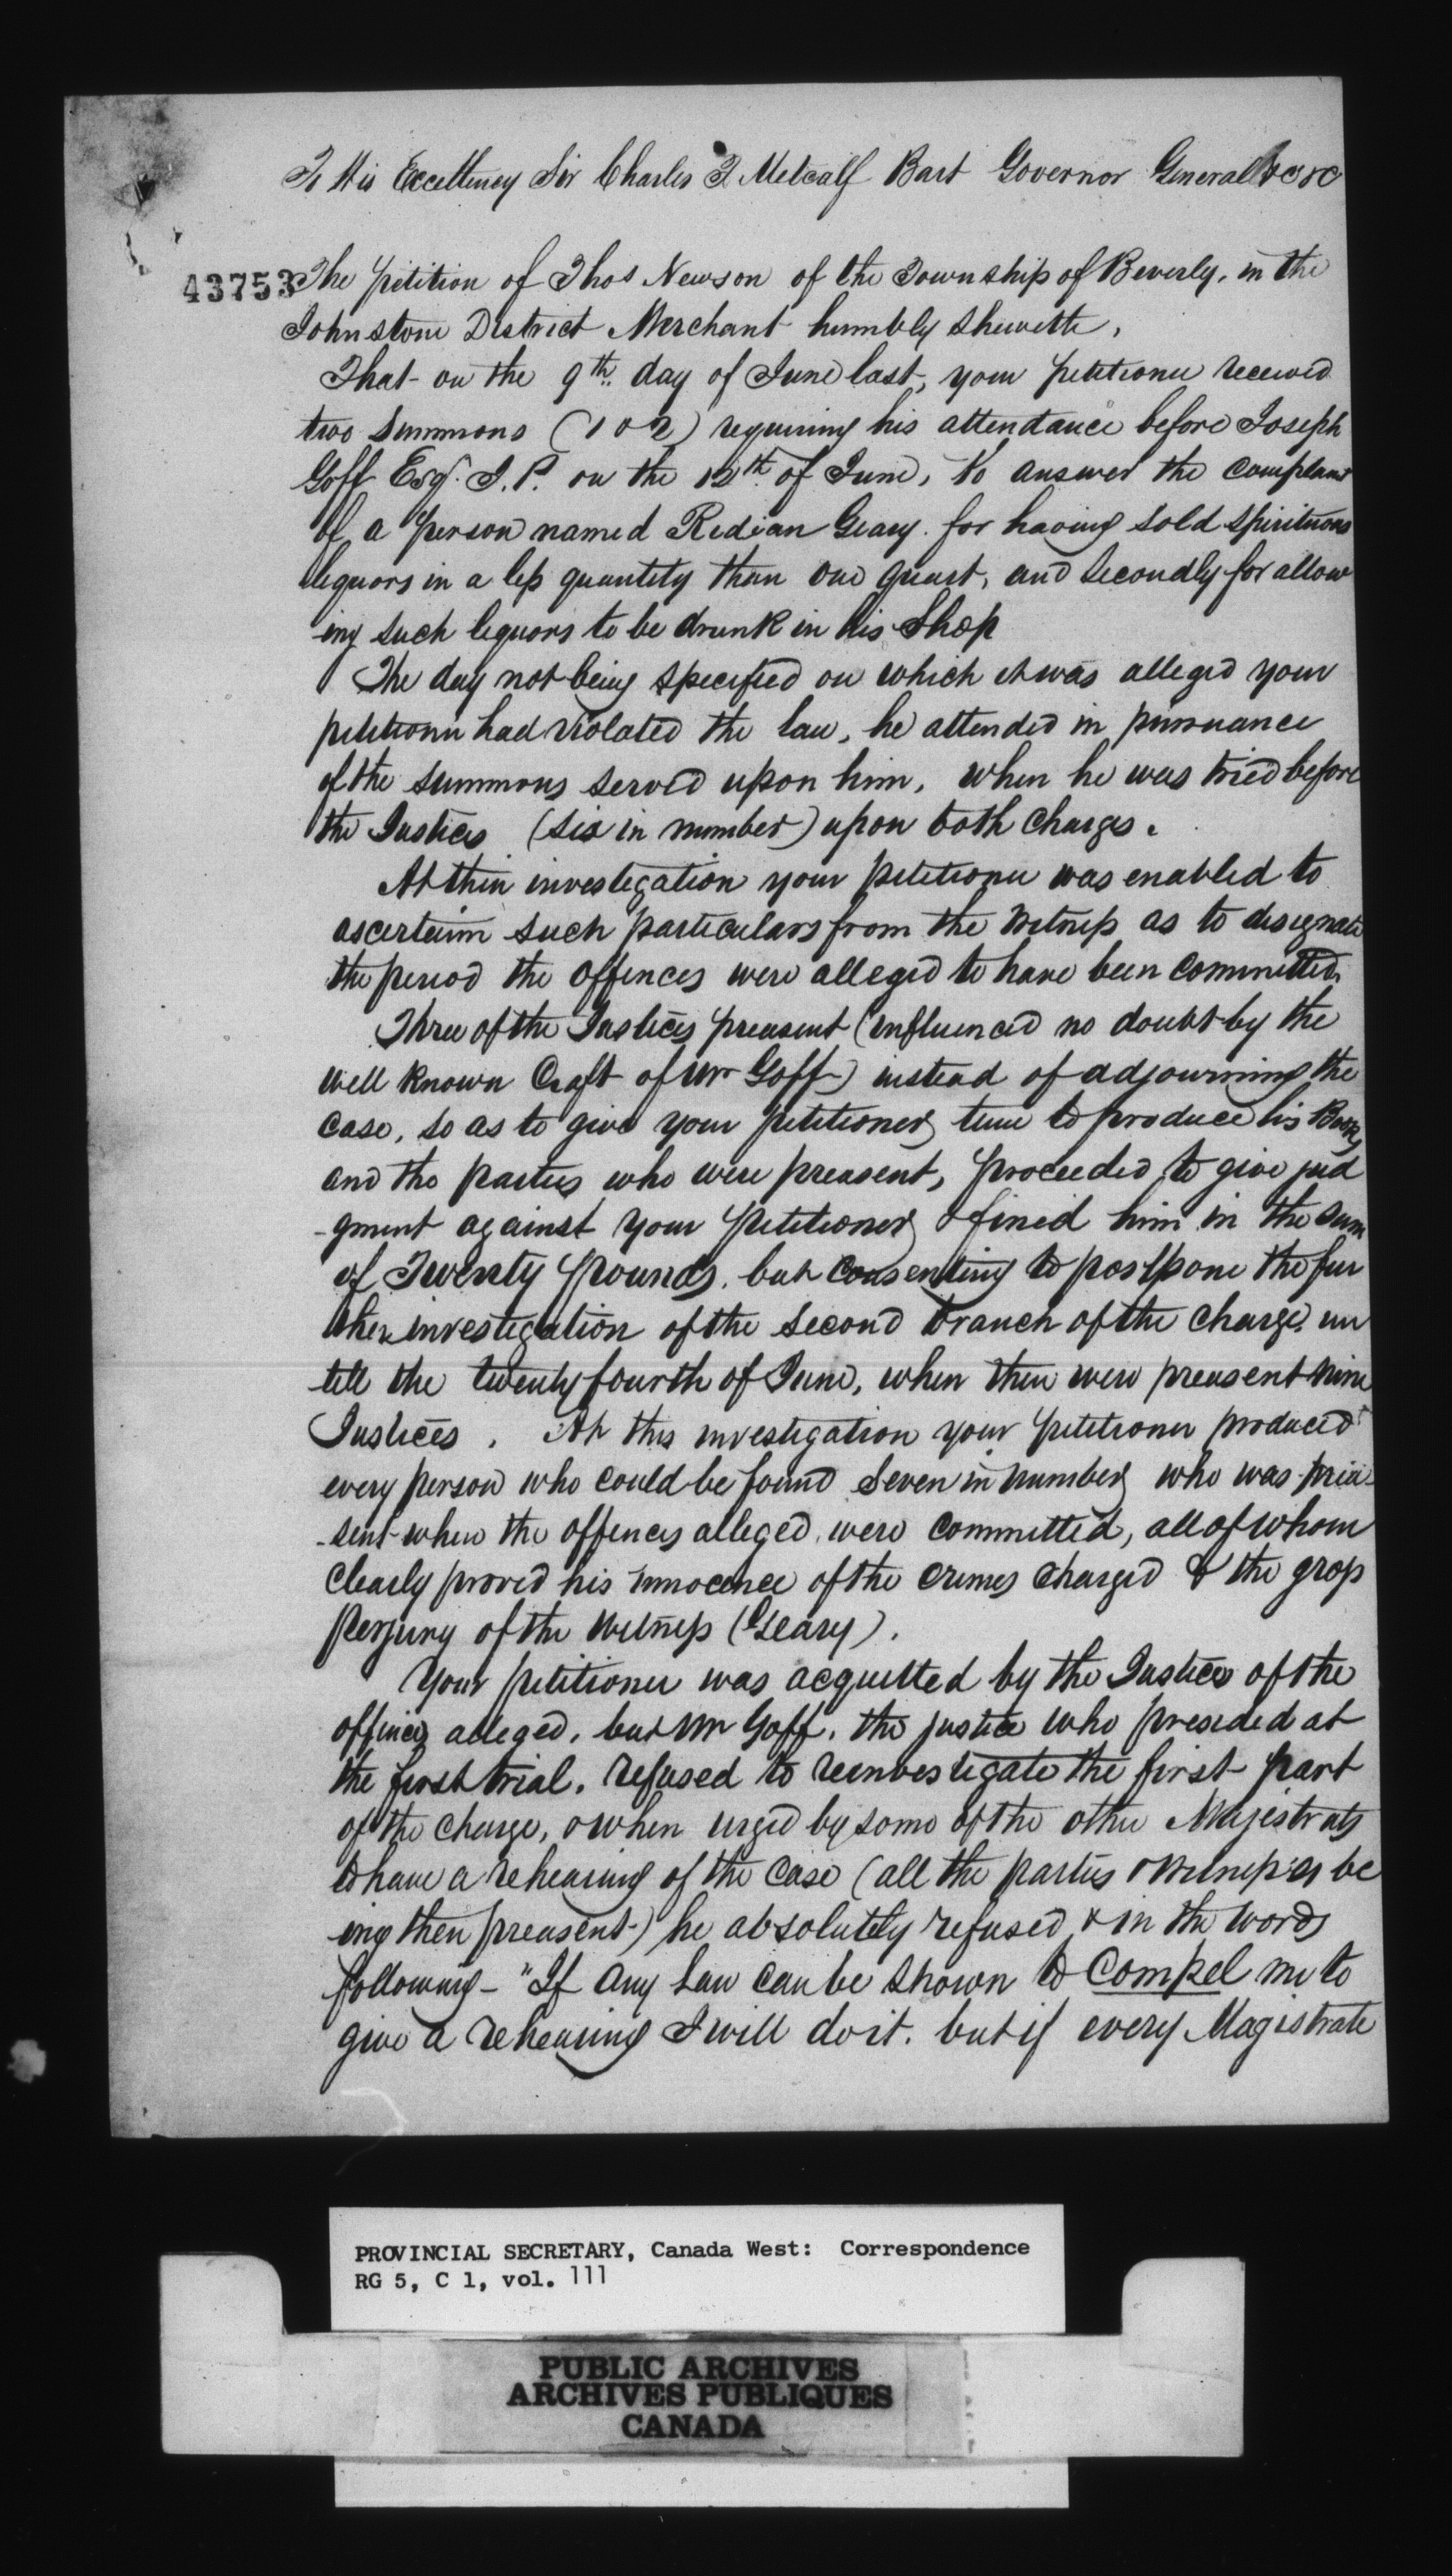 To His Excellency Sir Charles T Metcalf Bart Governor General &c &c
43753
The petition of Thos Newson of the Township of Beverly, in the
Johnstone District Merchant humbly sheweth,
That on the 9th day of June last, your petitioner received
two Summons (1 & 2) requiring his attendance before Joseph
Goff Esqr. J.P. on the 12th of June, to answer the complaint
of a person named Redian Geary for having sold spirituous
liquors in a less quantity than one quart, and secondly for allow
ing such liquors to be drunk in his Shop
The day not being specified on which it was alleged your
petitioner had violated the law, he attended in pursuance
of the summons served upon him, when he was tried before
the Justices (six in number) upon both charges.
At this investigation your petitioner was enabled to
ascertain such particulars from the witness as to designate
the period the offences were alleged to have been committed.
Three of the Justices preasent (influenced no doubt by the
well known Craft of Mr Goff) instead of adjourning the
case, so as to give your petitioner, time to produce his Books
and the parties who were preasent, proceeded to give jud
-gment against your petitioner & fined him in the sum
of Twenty pounds, but consenting to postpone the fur
ther investigation of the second branch of the charge, un
till the twenty fourth of June, when there were preasent nine
Justices. At this investigation your petitioner produced
every person who could be found seven in number, who was prea
-sent when the offences alleged, were committed, all of whom
clearly proved his innocence of the crimes charged & the gross
perjury of the witness (Geary).
Your petitioner was acquitted by the Justices of the
offences alleged, but Mr Goff, the justice who presided at
the first trial, refused to reinvestigate the first part
of the charge, & when urged by some of the other Majestrats
to have a rehearing of the case (all the parties & witnesses be
ing then preasent) he absolutely refused, & in the words
following - "If any law can be shown to compel me to
give a rehearing I will do it. but if every Magistrate
PROVINCIAL SECRETARY, Canada West: Correspondence
RG 5, C 1, vol. 111
PUBLIC ARCHIVES
ARCHIVES PUBLIQUES
CANADA